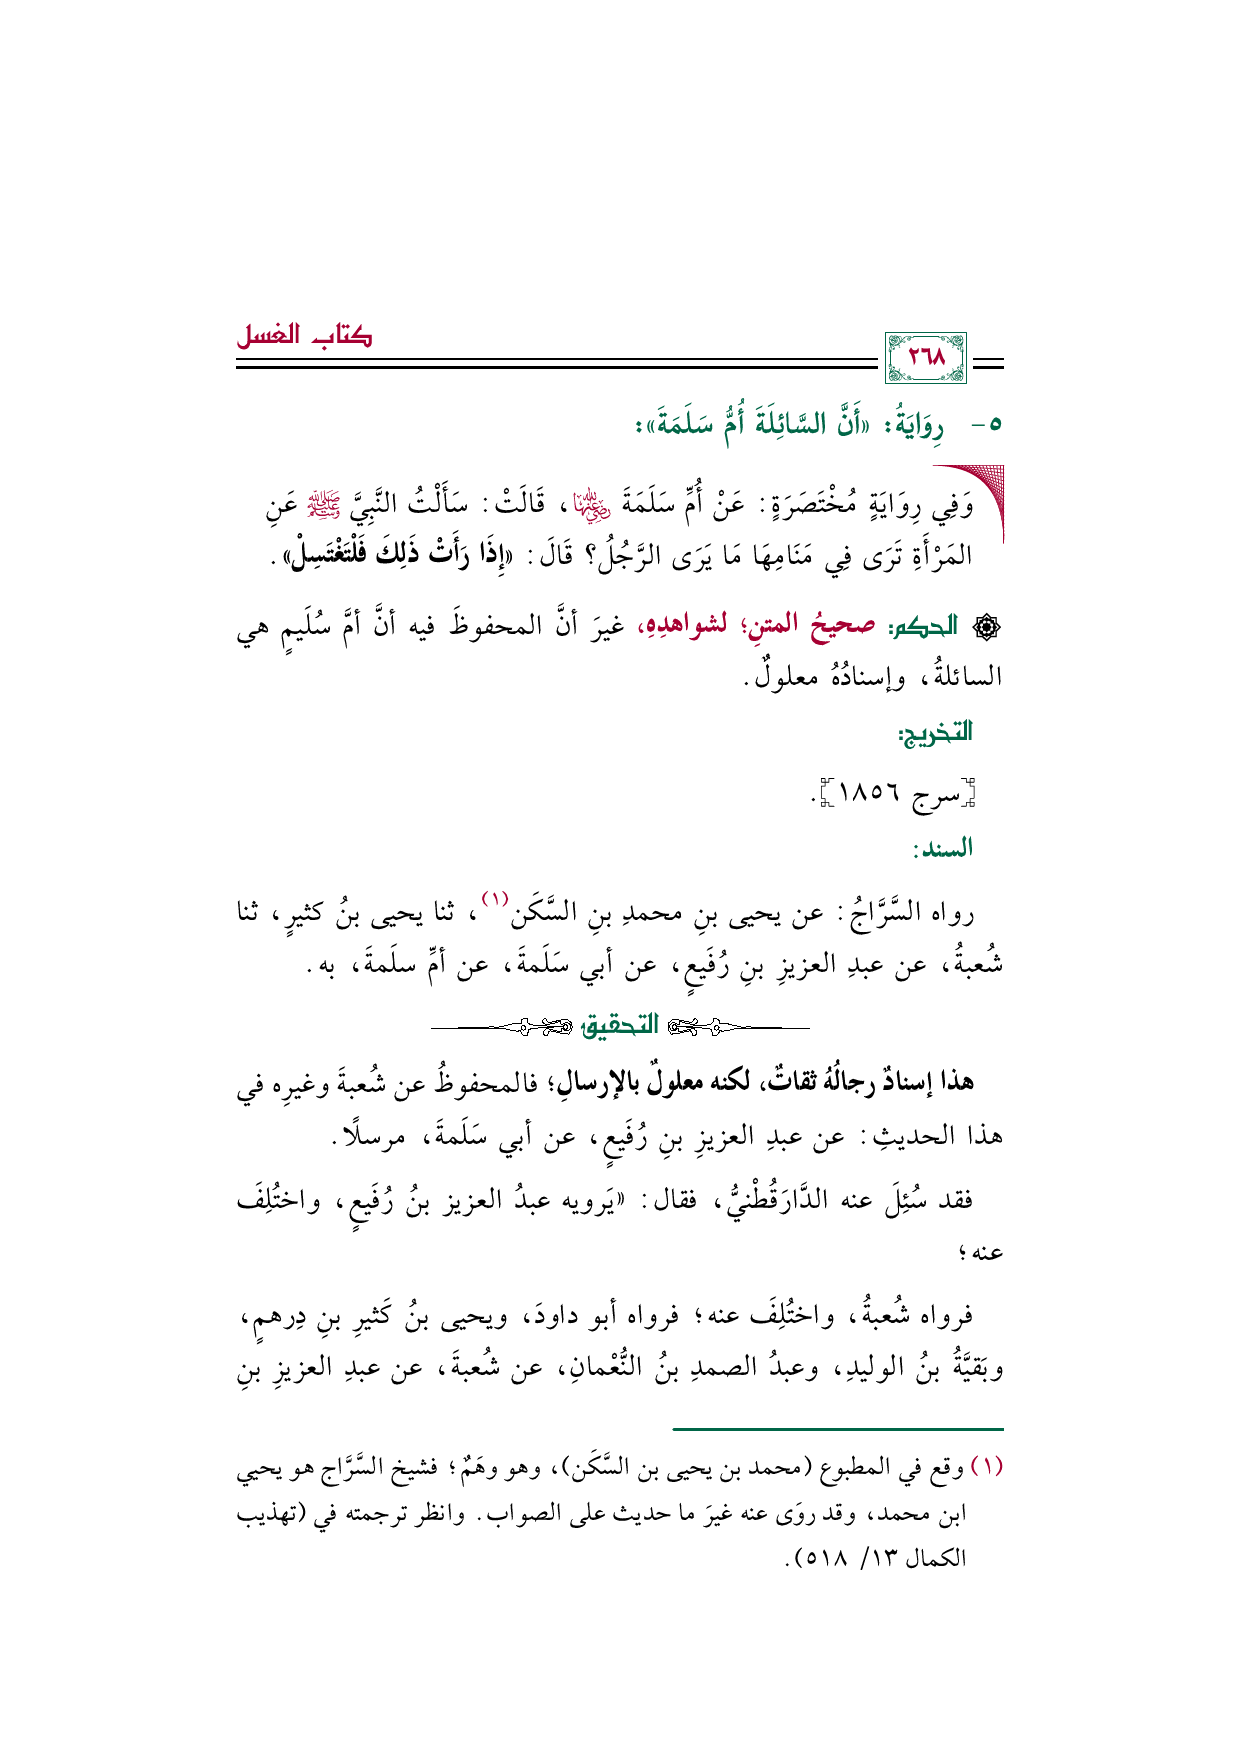 كتاب الغسل
٢٦٨
٥- رِوَايَةُ: «أَنَّ السَّائِلَةَ أُمُّ سَلَمَةَ»:
وَفِي رِوَايَةٍ مُخْتَصَرَةٍ: عَنْ أُمِّ سَلَمَةَ رضي الله عنها، قَالَتْ: سَأَلْتُ النَّبِيَّ ﷺ عَنِ
المَرْأَةِ تَرَى فِي مَنَامِهَا مَا يَرَى الرَّجُلُ؟ قَالَ: «إِذَا رَأَتْ ذَلِكَ فَلْتَغْتَسِلْ».
الحكم: صحيحُ المتنِ؛ لشواهدِهِ، غيرَ أنَّ المحفوظَ فيه أنَّ أمَّ سُلَيمٍ هي
السائلةُ، وإسنادُهُ معلولٌ.
التخريج:
[سرج ١٨٥٦].
السند:
رواه السَّرَّاجُ: عن يحيى بنِ محمدِ بنِ السَّكَن(١)، ثنا يحيى بنُ كثيرٍ، ثنا
شُعبةُ، عن عبدِ العزيزِ بنِ رُفَيعٍ، عن أبي سَلَمةَ، عن أمِّ سلَمةَ، به.
التحقيق
هذا إسنادٌ رجالُهُ ثقاتٌ، لكنه معلولٌ بالإرسالِ؛ فالمحفوظُ عن شُعبةَ وغيرِه في
هذا الحديثِ: عن عبدِ العزيزِ بنِ رُفَيعٍ، عن أبي سَلَمةَ، مرسلًا.
فقد سُئِلَ عنه الدَّارَقُطْنيُّ، فقال: «يَرويه عبدُ العزيز بنُ رُفَيعٍ، واختُلِفَ
عنه؛
فرواه شُعبةُ، واختُلِفَ عنه؛ فرواه أبو داودَ، ويحيى بنُ كَثيرِ بنِ دِرهمٍ،
وبَقيَّةُ بنُ الوليدِ، وعبدُ الصمدِ بنُ النُّعْمانِ، عن شُعبةَ، عن عبدِ العزيزِ بنِ
(١) وقع في المطبوع (محمد بن يحيى بن السَّكَن)، وهو وهَمٌ؛ فشيخ السَّرَّاج هو يحيي
ابن محمد، وقد روَى عنه غيرَ ما حديث على الصواب. وانظر ترجمته في (تهذيب
الكمال ١٣/ ٥١٨).